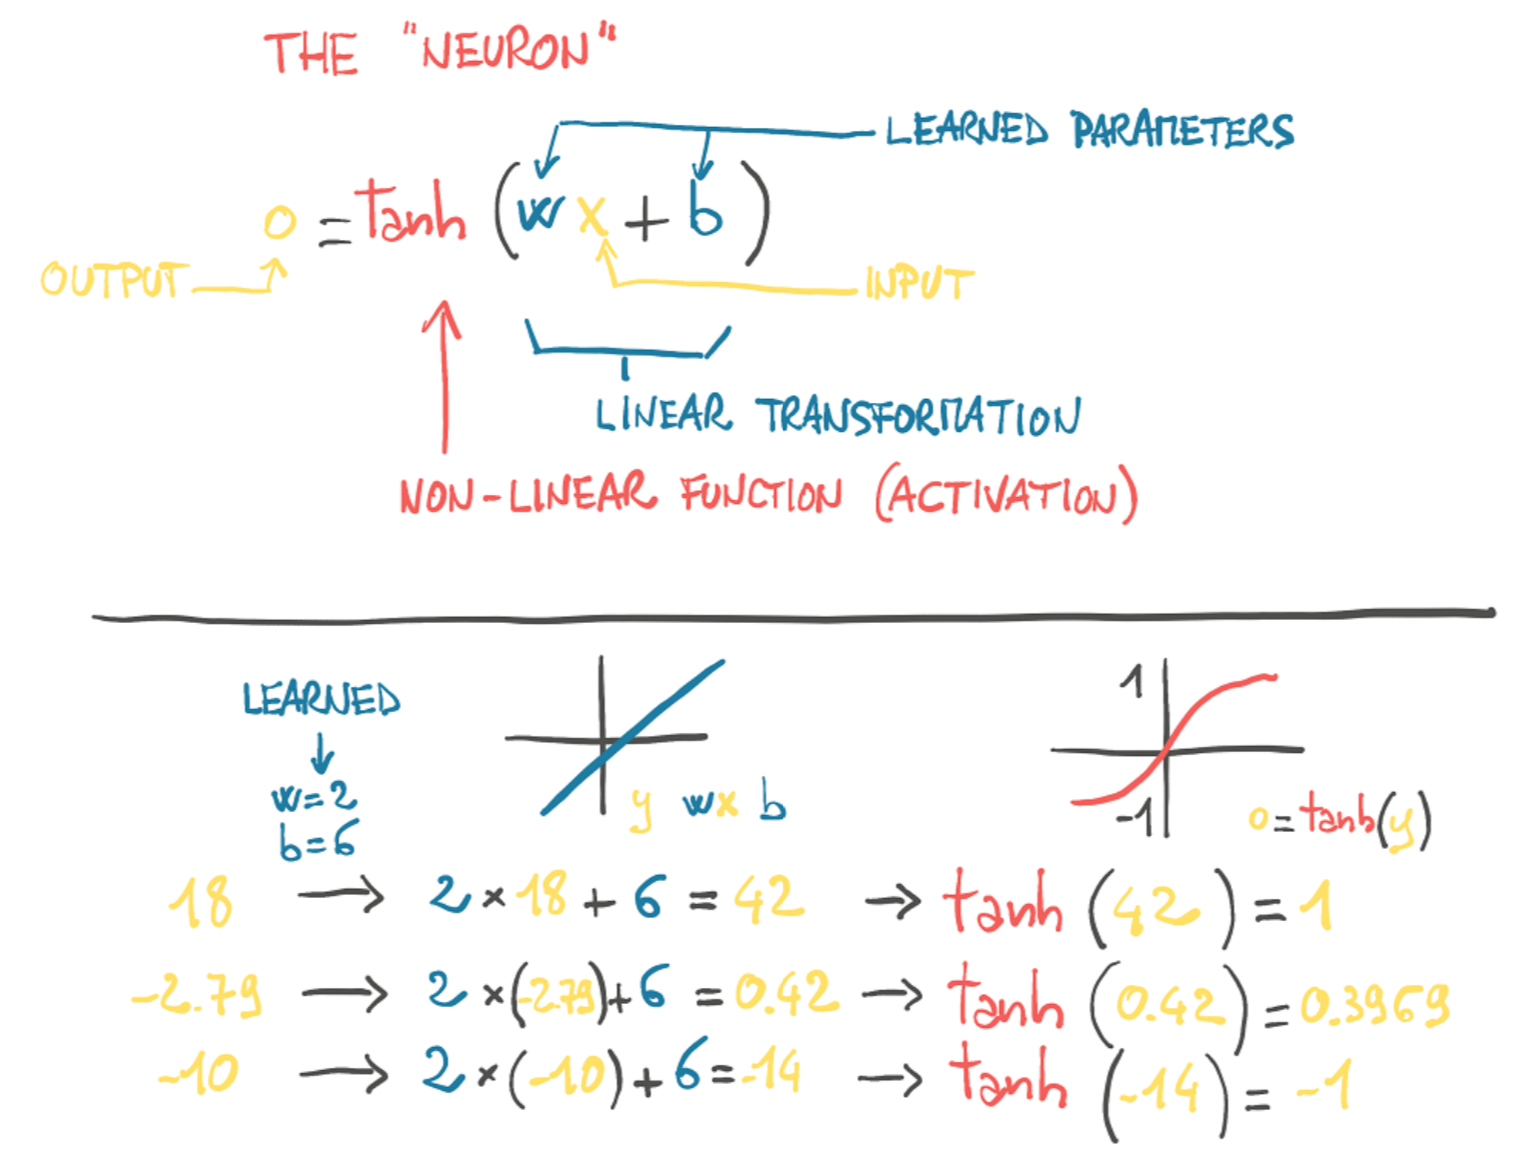 THE "NEURON"
LEARNED PARAMETERS
o = tanh (wx + b)
OUTPUT
INPUT
LINEAR TRANSFORMATION
NON-LINEAR FUNCTION (ACTIVATION)
LEARNED
w=2
b=6
y wx b
1
-1
o=tanh(y)
18 → 2 × 18 + 6 = 42 → tanh (42) = 1
-2.79 → 2 ×(-2.79)+6 = 0.42 → tanh (0.42) = 0.3969
-10 → 2 ×(-10)+6=-14 → tanh (-14) = -1